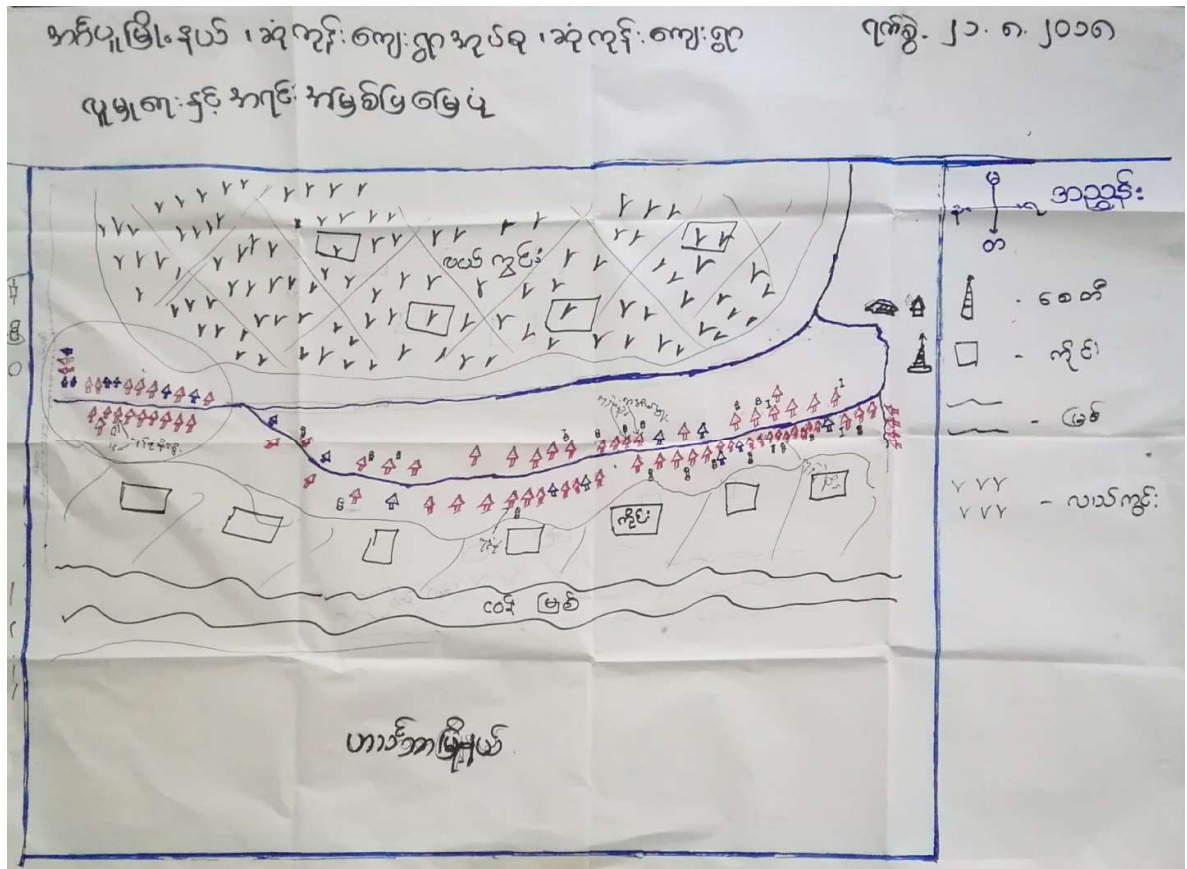 အင်္ဂပူမြို့နယ်၊ ဆုံကုန်းကျေးရွာအုပ်စု၊ ဆုံကုန်းကျေးရွာ
ရက်စွဲ. ၂၁.၈.၂၀၁၈
လူမှုရေးနှင့် အရင်းအမြစ်ပြမြေပုံ
မ
အညွှန်း
န
ရ
တ
လယ်ကွင်း
စေတီ
ကိုင်း
မြစ်
လယ်ကွင်း
ကိုင်း
ငဝန် မြစ်
ဟင်္သာတမြို့နယ်